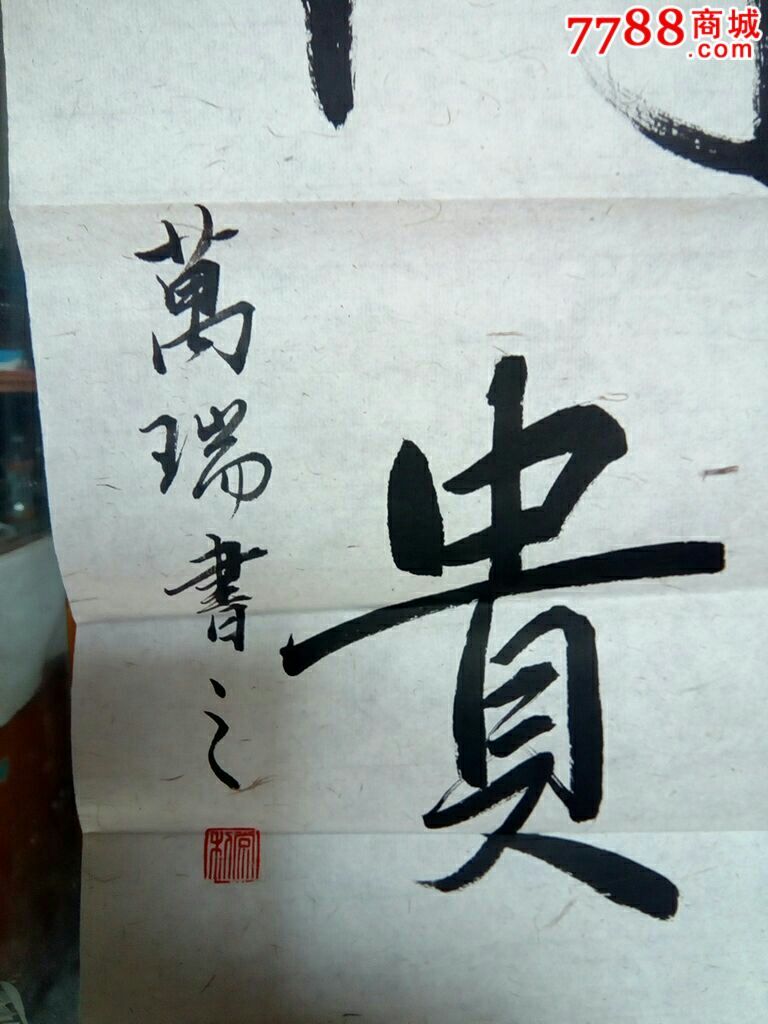 7788商城
.com
貴
萬瑞書之